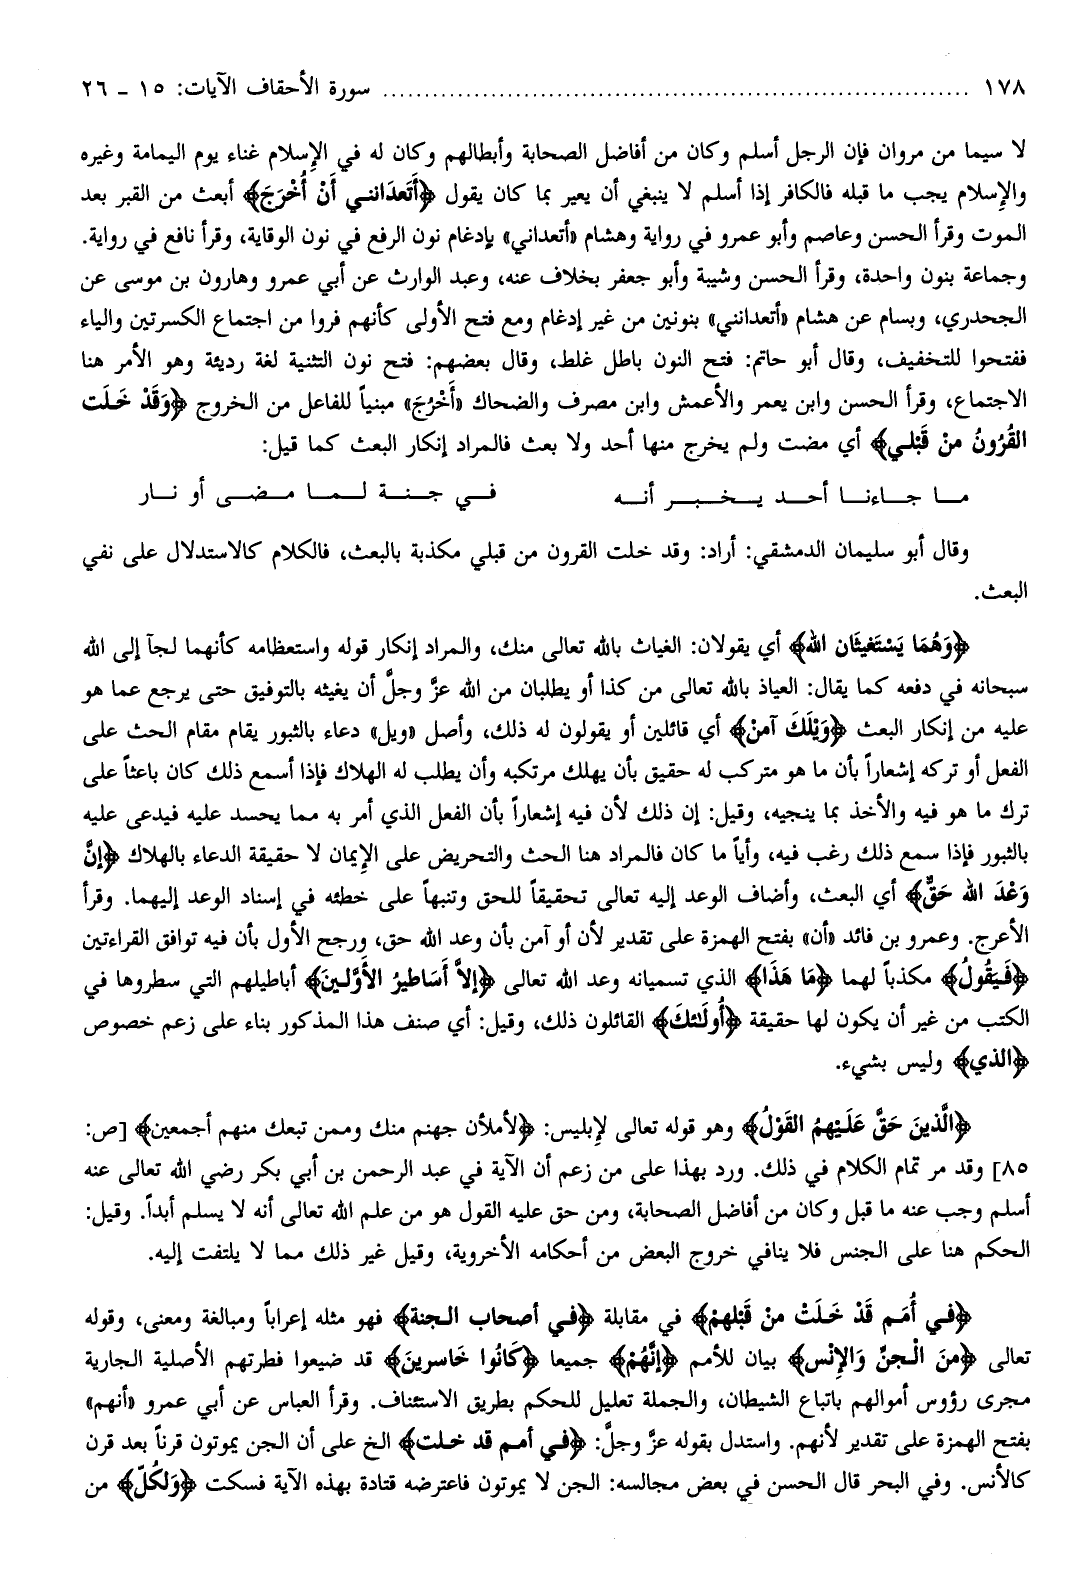 ١٧٨ ........................................................................ سورة الأحقاف الآيات: ١٥ ـ ٢٦
لا سيما من مروان فإن الرجل أسلم وكان من أفاضل الصحابة وأبطالهم وكان له في الإِسلام غناء يوم اليمامة وغيره
والإِسلام يجب ما قبله فالكافر إذا أسلم لا ينبغي أن يعير بما كان يقول ﴿أَتَعدَانني أَنْ أُخْرَجَ﴾ أبعث من القبر بعد
الموت وقرأ الحسن وعاصم وأبو عمرو في رواية وهشام «أتعداني» بإدغام نون الرفع في نون الوقاية، وقرأ نافع في رواية.
وجماعة بنون واحدة، وقرأ الحسن وشيبة وأبو جعفر بخلاف عنه، وعبد الوارث عن أبي عمرو وهارون بن موسى عن
الجحدري، وبسام عن هشام «أتعدانني» بنونين من غير إدغام ومع فتح الأولى كأنهم فروا من اجتماع الكسرتين والياء
ففتحوا للتخفيف، وقال أبو حاتم: فتح النون باطل غلط، وقال بعضهم: فتح نون التثنية لغة رديئة وهو الأمر هنا
الاجتماع، وقرأ الحسن وابن يعمر والأعمش وابن مصرف والضحاك «أَخْرُجَ» مبنياً للفاعل من الخروج ﴿وَقَدْ خَلَت
القُرُونُ منْ قَبْلي﴾ أي مضت ولم يخرج منها أحد ولا بعث فالمراد إنكار البعث كما قيل:
مـا جـاءنـا أحـد يـخـبـر أنـه في جـنـة لـمـا مـضـى أو نـار
وقال أبو سليمان الدمشقي: أراد: وقد خلت القرون من قبلي مكذبة بالبعث، فالكلام كالاستدلال على نفي
البعث.
﴿وَهُمَا يَسْتَغيثَان اللهَ﴾ أي يقولان: الغياث بالله تعالى منك، والمراد إنكار قوله واستعظامه كأنهما لجآ إلى الله
سبحانه في دفعه كما يقال: العياذ بالله تعالى من كذا أو يطلبان من الله عزَّ وجلَّ أن يغيثه بالتوفيق حتى يرجع عما هو
عليه من إنكار البعث ﴿وَيْلَكَ آمنْ﴾ أي قائلين أو يقولون له ذلك، وأصل «ويل» دعاء بالثبور يقام مقام الحث على
الفعل أو تركه إشعاراً بأن ما هو متركب له حقيق بأن يهلك مرتكبه وأن يطلب له الهلاك فإذا أسمع ذلك كان باعثاً على
ترك ما هو فيه والأخذ بما ينجيه، وقيل: إن ذلك لأن فيه إشعاراً بأن الفعل الذي أمر به مما يحسد عليه فيدعى عليه
بالثبور فإذا سمع ذلك رغب فيه، وأياً ما كان فالمراد هنا الحث والتحريض على الإِيمان لا حقيقة الدعاء بالهلاك ﴿إنَّ
وَعْدَ الله حَقٌّ﴾ أي البعث، وأضاف الوعد إليه تعالى تحقيقاً للحق وتنبهاً على خطئه في إسناد الوعد إليهما. وقرأ
الأعرج. وعمرو بن فائد «أن» بفتح الهمزة على تقدير لأن أو آمن بأن وعد الله حق، ورجح الأول بأن فيه توافق القراءتين
﴿فَيَقُولُ﴾ مكذباً لهما ﴿مَا هَذَا﴾ الذي تسميانه وعد الله تعالى ﴿إلاَّ أَسَاطيرُ الأَوَّلينَ﴾ أباطيلهم التي سطروها في
الكتب من غير أن يكون لها حقيقة ﴿أُولَئكَ﴾ القائلون ذلك، وقيل: أي صنف هذا المذكور بناء على زعم خصوص
﴿الذي﴾ وليس بشيء.
﴿الَّذينَ حَقَّ عَلَيْهمُ القَوْلُ﴾ وهو قوله تعالى لإِبليس: ﴿لأملأن جهنم منك وممن تبعك منهم أجمعين﴾ [ص:
٨٥] وقد مر تمام الكلام في ذلك. ورد بهذا على من زعم أن الآية في عبد الرحمن بن أبي بكر رضي الله تعالى عنه
أسلم وجب عنه ما قبل وكان من أفاضل الصحابة، ومن حق عليه القول هو من علم الله تعالى أنه لا يسلم أبداً. وقيل:
الحكم هنا على الجنس فلا ينافي خروج البعض من أحكامه الأخروية، وقيل غير ذلك مما لا يلتفت إليه.
﴿في أُمَم قَدْ خَلَتْ منْ قَبْلهمْ﴾ في مقابلة ﴿في أصحاب الجنة﴾ فهو مثله إعراباً ومبالغة ومعنى، وقوله
تعالى ﴿منَ الْجنِّ وَالإنْس﴾ بيان للأمم ﴿إنَّهُمْ﴾ جميعا ﴿كَانُوا خَاسرينَ﴾ قد ضيعوا فطرتهم الأصلية الجارية
مجرى رؤوس أموالهم باتباع الشيطان، والجملة تعليل للحكم بطريق الاستئناف. وقرأ العباس عن أبي عمرو «أنهم»
بفتح الهمزة على تقدير لأنهم. واستدل بقوله عزَّ وجلَّ: ﴿في أمم قد خلت﴾ الخ على أن الجن يموتون قرناً بعد قرن
كالأنس. وفي البحر قال الحسن في بعض مجالسه: الجن لا يموتون فاعترضه قتادة بهذه الآية فسكت ﴿وَلكُلّ﴾ من